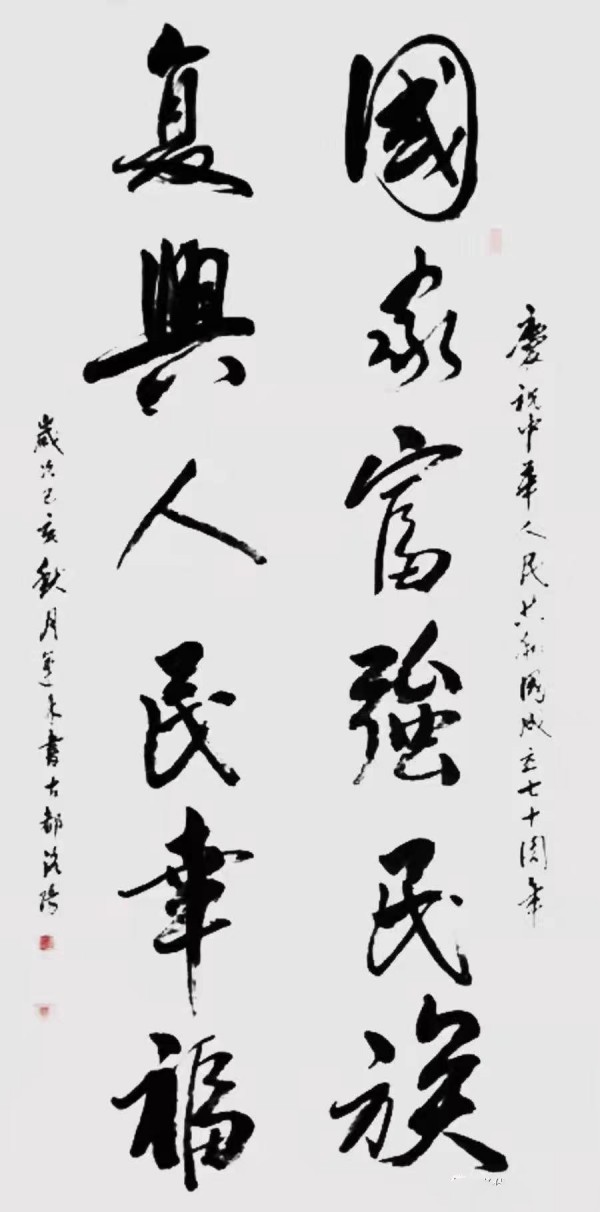 慶祝中華人民共和國成立七十周年
國家富強民族
复興人民幸福
歲次己亥秋月運來書古都洛陽